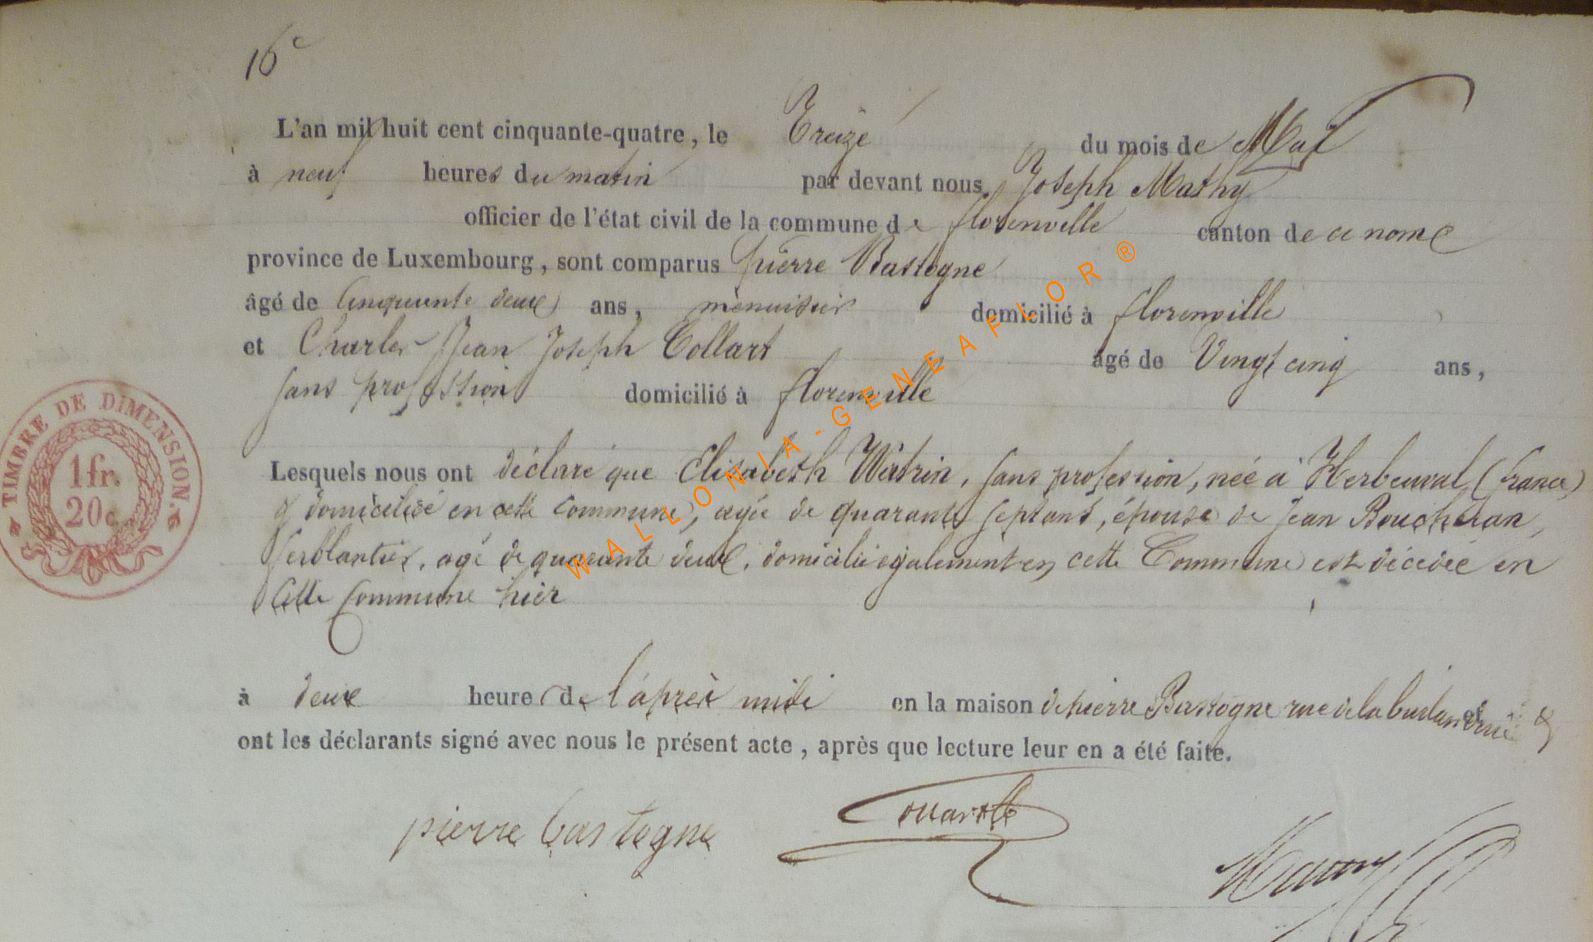 16e
L'an mil huit cent cinquante-quatre, le Treize du mois de Mai
à neuf heures du matin par devant nous Joseph Mathy
officier de l'état civil de la commune de florenville canton de ce nom
province de Luxembourg, sont comparus pierre Bastogne
âgé de Cinquante deux ans, menuisier domicilié à florenville
et Charles Jean Joseph Collart âgé de Vingt cinq ans,
sans profession domicilié à florenville
Lesquels nous ont déclaré que Elisabeth Watrin, sans profession, née à Herbeuval (france)
& domiciliée en cette commune, agée de quarante sept ans, épouse de Jean Boucheran,
ferblantier, agé de quarante deux, domicilié également en cette Commune est décédée en
cette Commune hier
à deux heures de l'après midi en la maison de pierre Bastogne rue de la et &
ont les déclarants signé avec nous le présent acte, après que lecture leur en a été faite.
pierre bastogne
TIMBRE DE DIMENSION.
1 fr.
20 c.
WALLONIA-GENEAFLOR®